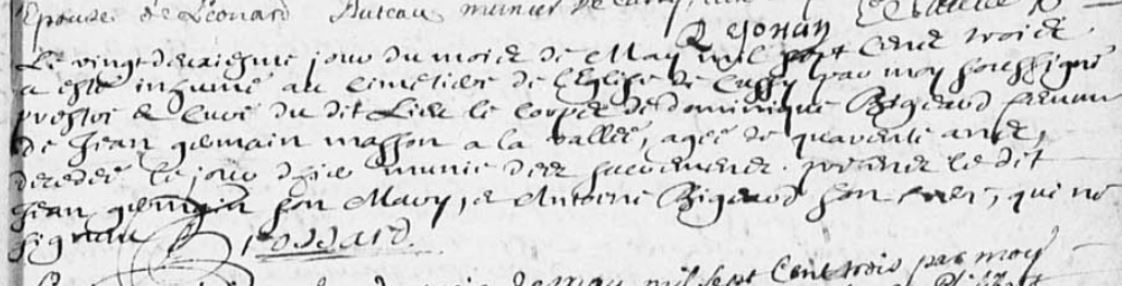 Epouse de Léonard Buteau munier de
R Johan
Le vingt deuxiesme jour du mois de May mil sept cent trois
a esté inhumé au cimetiere de l'Eglise de Cussy par moy soussigné
prestre & curé du dit Lieu le corps de dominique Bigeard femme
de Jean gemain masson a la vallée, agée de quarente ans,
decedée le jour d'hier munie des sacrements. presents le dit
Jean gemain son Mary, et Antoine Bigeard son frere, qui ne
signent Goddard
de may mil sept cent trois par moy